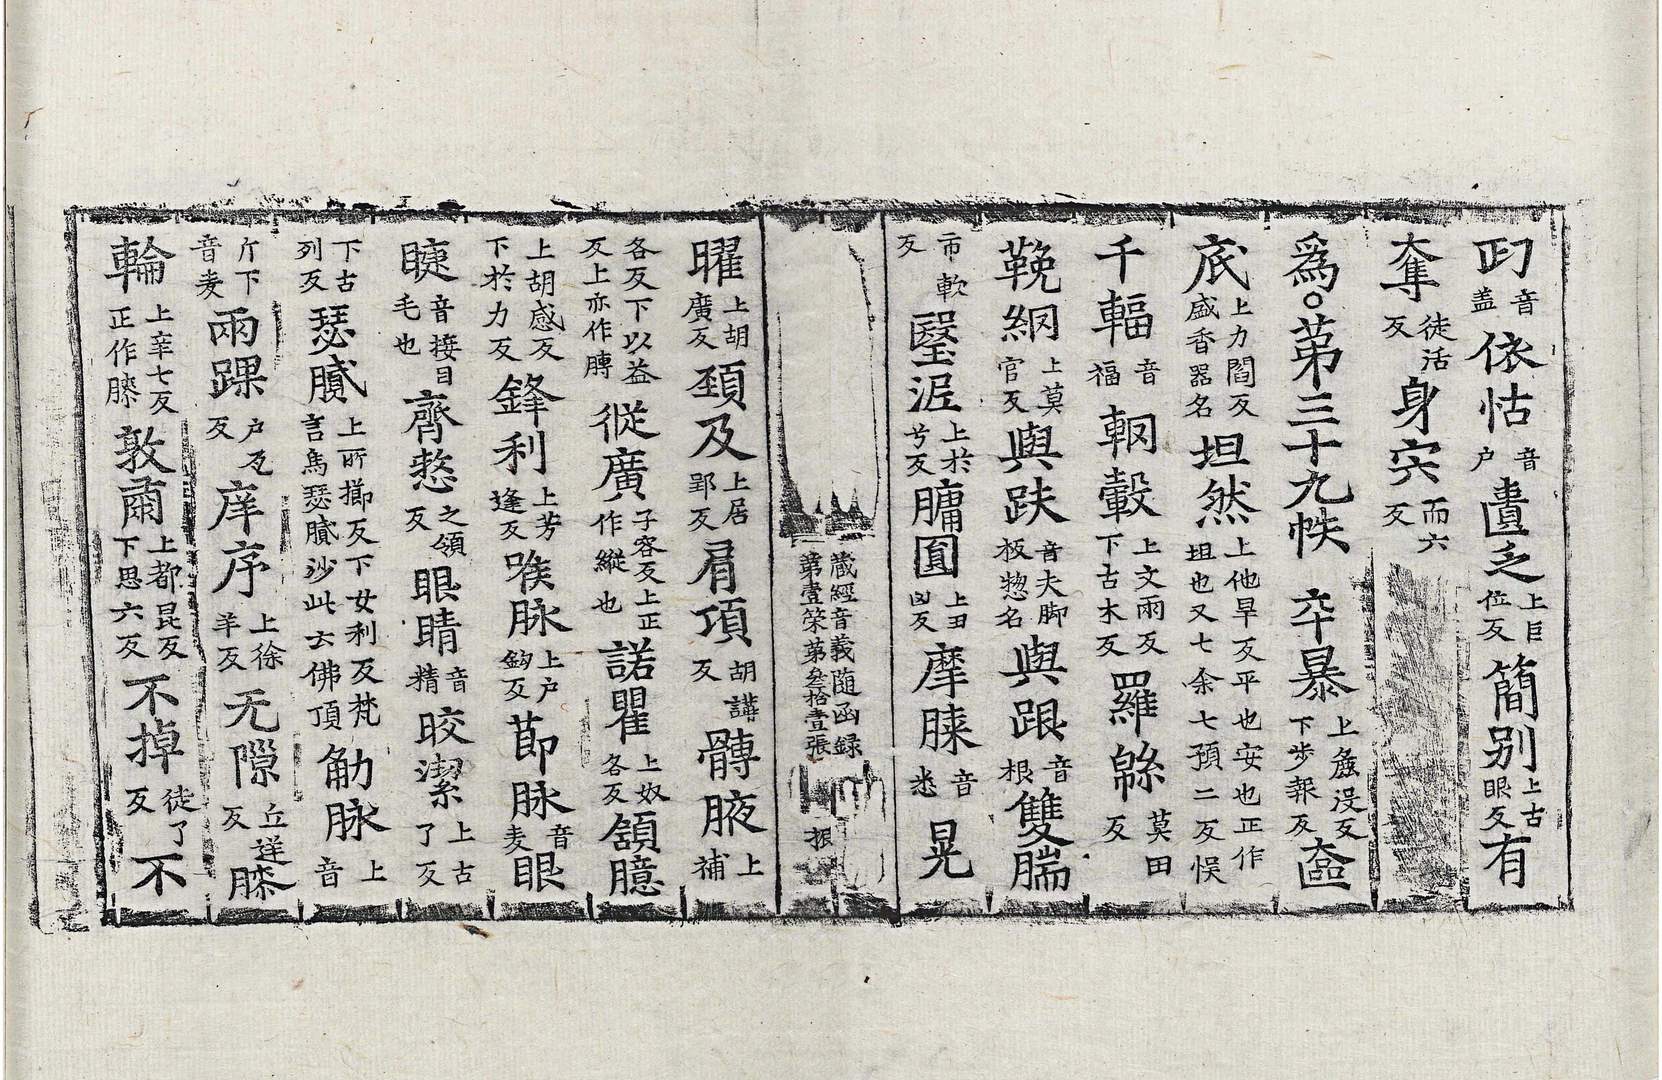 匃音盖依怙音户匱乏上巨位反簡别上古眼反有
奪徒活反身宍而六反
爲○第三十九帙卒暴上麁没反下步報反奩
底上力閻反盛香器名坦然上他旱反平也安也正作坥也又七余七預二反悮
千輻音福輞轂上文兩反下古木反羅緜莫田反
鞔網上莫官反與趺音夫脚板惣名與跟音根雙腨
市軟反翳泥上於兮反𦟛圓上丑凶反摩𦟛音悉晃
藏經音義隨函録
第壹策第叁拾壹張 振
曜上胡廣反頚及上居郢反肩項胡講反髆腋上補
各反下以益反上亦作膞從廣子容反上正作縱也諾瞿上奴各反頷臆
上胡感反下於力反鋒利上芳逢反喉脉上户鈎反莭脉音麦眼
睫音接目毛也齊整之領反眼睛音精皎潔上古了反
下古列反瑟膩上所擳反下女利反梵言烏瑟膩沙此云佛頂觔脉上音
斤下音麦兩踝户瓦反庠序上徐羊反无隙丘逆反膝
輪上辛七反正作膝敦肅上都昆反下思六反不掉徒了反不